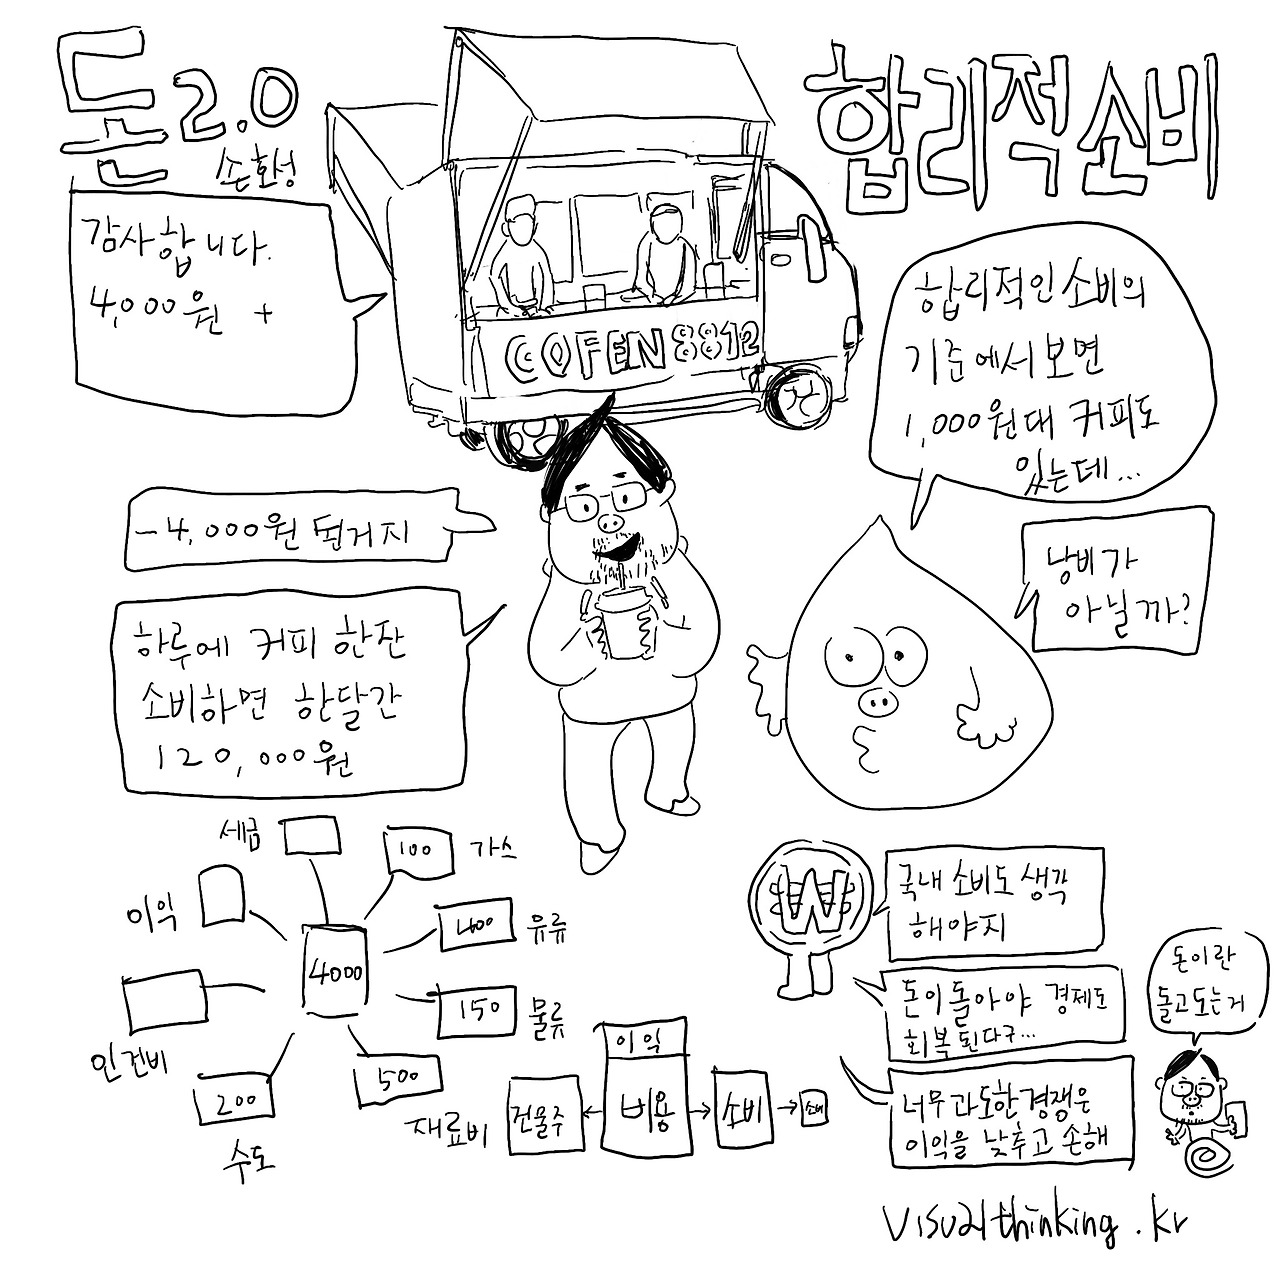 돈2.0
손화성
합리적소비
감사합니다.
4,000원 +
COFEN 8812
합리적인 소비의
기준에서 보면
1,000원대 커피도
있는데...
낭비가
아닐까?
-4,000원 된거지
하루에 커피 한잔
소비하면 한달간
120,000원
세금
100 가스
이익
400 유류
4000
150 물류
인건비
200
수도
500
재료비
이익
건물주
비용
소비
소비
₩
국내 소비도 생각
해야지
돈이 돌아야 경제도
회복된다구...
너무 과도한 경쟁은
이익을 낮추고 손해
돈이란
돌고 도는거
visualthinking.kr